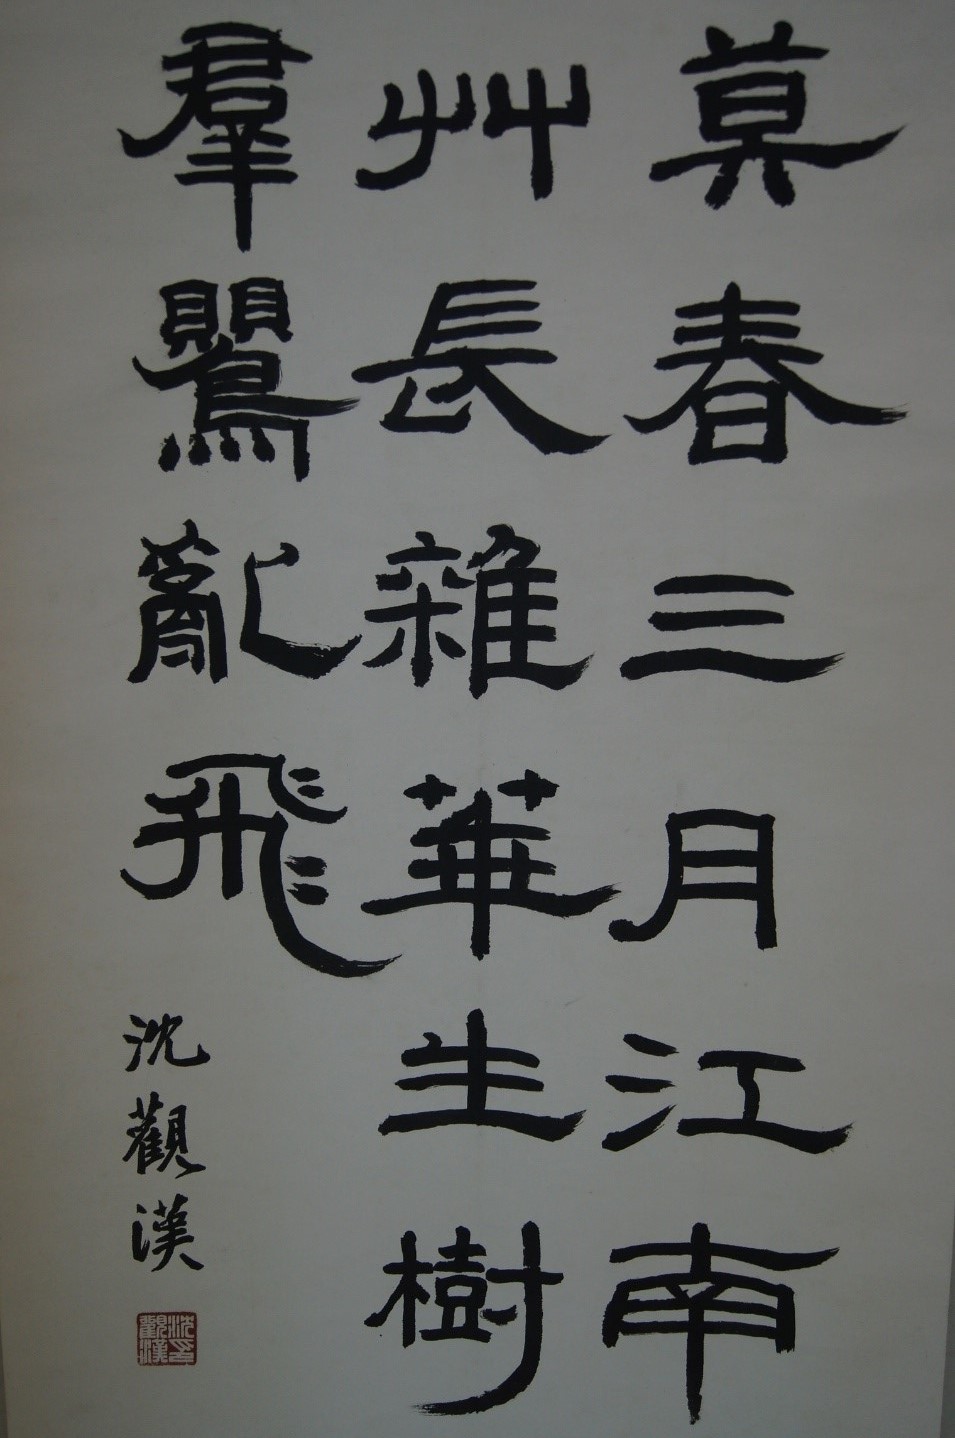 莫春三月江南
艸長雜華生樹
羣鸎亂飛
沈觀漢
沈觀漢印